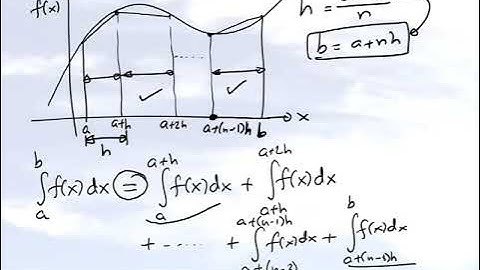 f(x)
h = /n
b = a+nh
a a+h a+2h a+(n-1)h b x
h
∫_a^b f(x)dx = ∫_a^{a+h} f(x)dx + ∫_{a+h}^{a+2h} f(x)dx
+ ...... + ∫_{a+(n-2)}^{a+(n-1)h} f(x)dx + ∫_{a+(n-1)h}^b f(x)dx